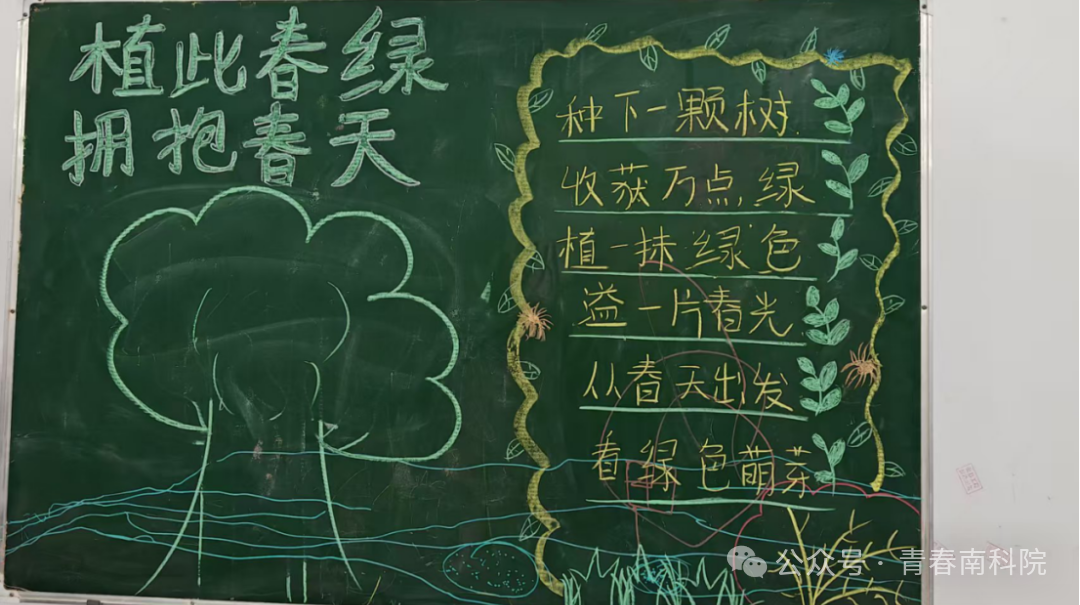 植此春绿
拥抱春天
种下一颗树
收获万点绿
植一抹绿色
溢一片春光
从春天出发
看绿色萌芽
公众号·青春南科院